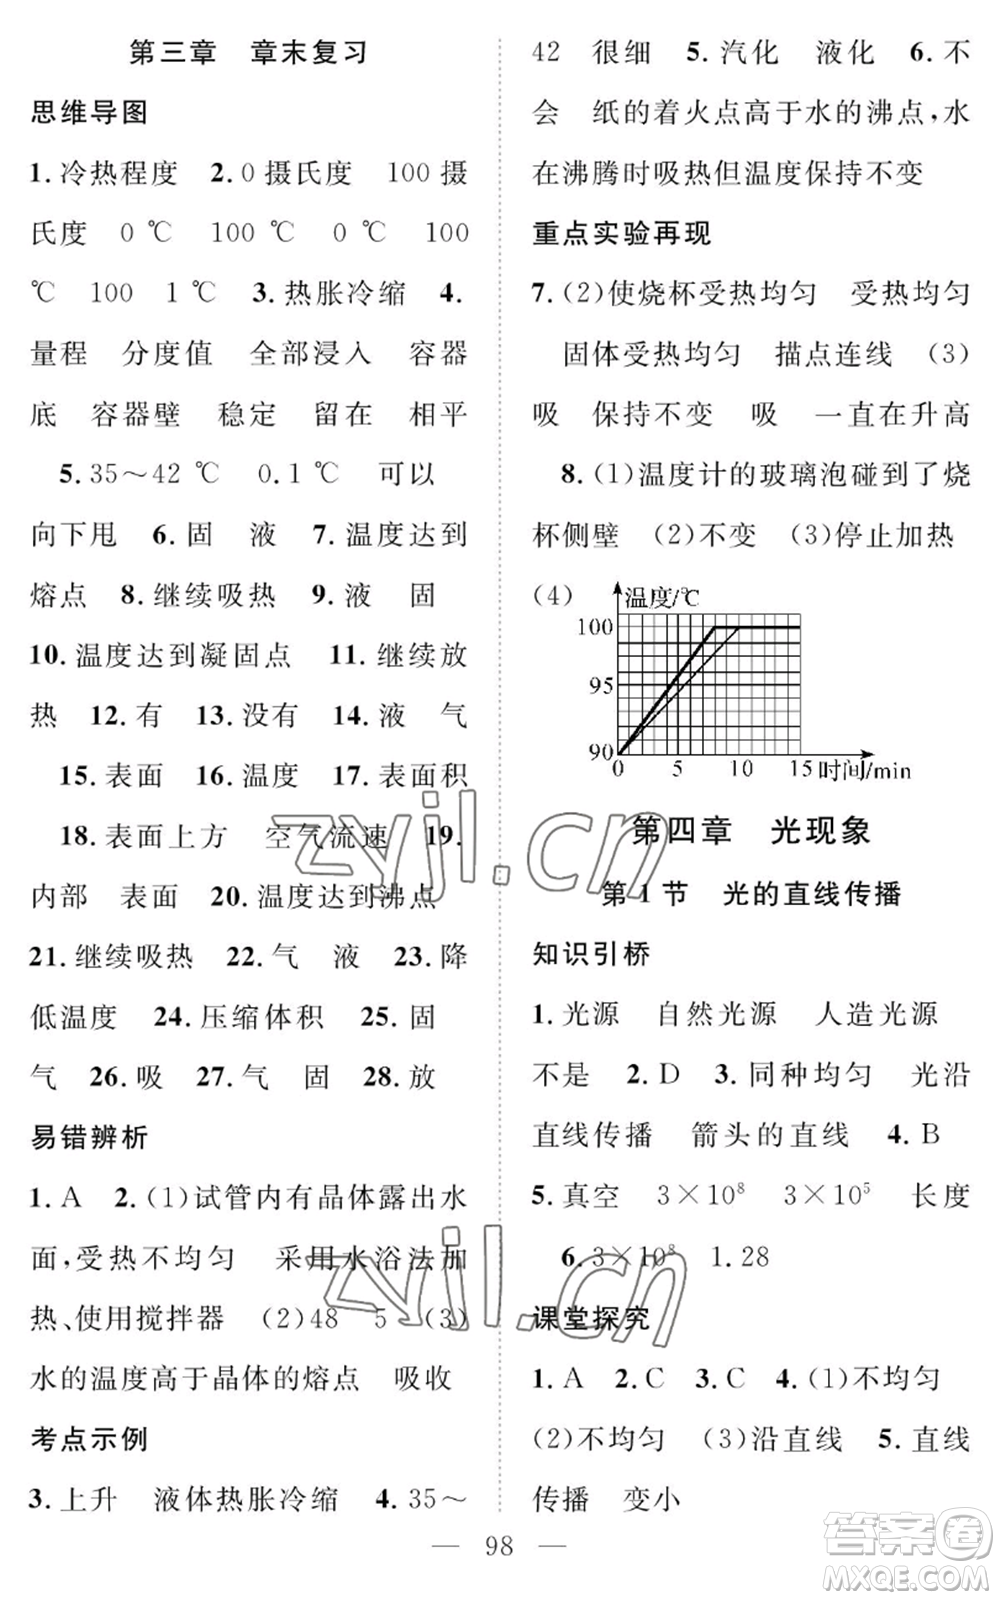 第三章 章末复习
思维导图
1.冷热程度 2.0摄氏度 100摄
氏度 0℃ 100℃ 0℃ 100
℃ 100 1℃ 3.热胀冷缩 4.
量程 分度值 全部浸入 容器
底 容器壁 稳定 留在 相平
5.35～42℃ 0.1℃ 可以
向下甩 6.固 液 7.温度达到
熔点 8.继续吸热 9.液 固
10.温度达到凝固点 11.继续放
热 12.有 13.没有 14.液 气
15.表面 16.温度 17.表面积
18.表面上方 空气流速 19.
内部 表面 20.温度达到沸点
21.继续吸热 22.气 液 23.降
低温度 24.压缩体积 25.固
气 26.吸 27.气 固 28.放
易错辨析
1.A 2.(1)试管内有晶体露出水
面,受热不均匀 采用水浴法加
热、使用搅拌器 (2)48 5 (3)
水的温度高于晶体的熔点 吸收
考点示例
3.上升 液体热胀冷缩 4.35～
42 很细 5.汽化 液化 6.不
会 纸的着火点高于水的沸点,水
在沸腾时吸热但温度保持不变
重点实验再现
7.(2)使烧杯受热均匀 受热均匀
固体受热均匀 描点连线 (3)
吸 保持不变 吸 一直在升高
8.(1)温度计的玻璃泡碰到了烧
杯侧壁 (2)不变 (3)停止加热
(4)
温度/℃
100
95
90
0 5 10 15 时间/min
第四章 光现象
第1节 光的直线传播
知识引桥
1.光源 自然光源 人造光源
不是 2.D 3.同种均匀 光沿
直线传播 箭头的直线 4.B
5.真空 3×10⁸ 3×10⁵ 长度
6.3×10⁸ 1.28
课堂探究
1.A 2.C 3.C 4.(1)不均匀
(2)不均匀 (3)沿直线 5.直线
传播 变小
— 98 —
zyjl.cn
zyjl.cn
答案圈
MXQE.COM